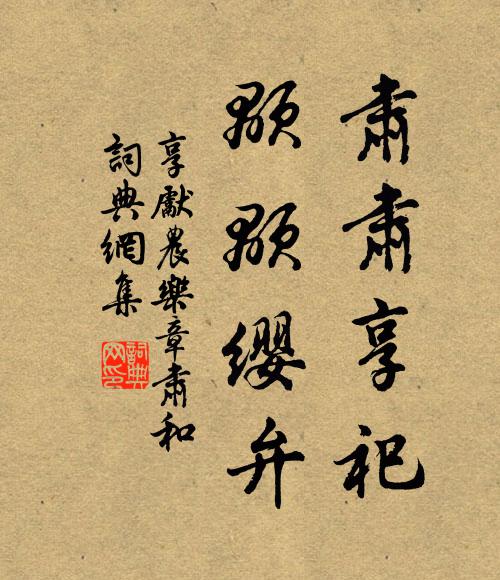 肅肅享祀
顒顒纓弁
享獻農樂章肅和
詞典網集
詞典网印